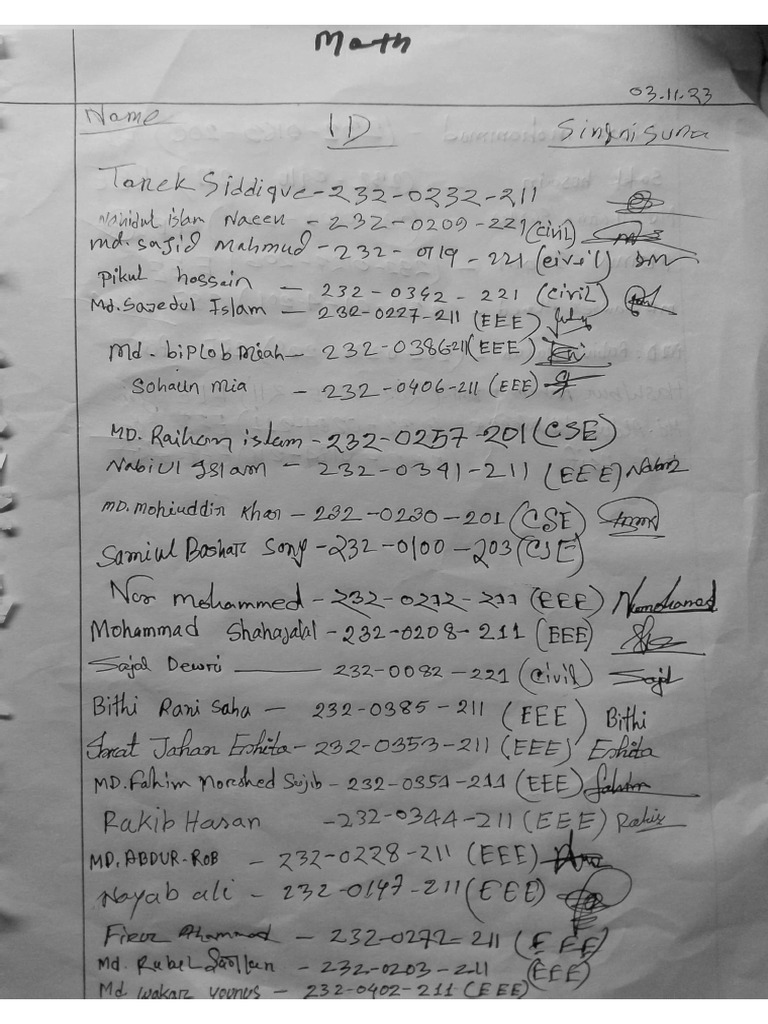 Math
03.11.23
Name ID Singnisuna
Tarek Siddique - 232-0232-211
Nahidul islam Naeen - 232-0209-221 (civil)
md. sajid Mahmud - 232-0119-221 (civil)
Pikul hossain - 232-0342-221 (civil)
Md. Sajedul Islam - 232-0227-211 (EEE)
Md. biplob Miah - 232-0386 211 (EEE)
Sohaun mia - 232-0406-211 (EEE)
MD. Raihan islam - 232-0257-201 (CSE)
Nabiul Islam - 232-0341-211 (EEE) Nabiul
MD. Mohiuddin Khan - 232-0230-201 (CSE)
Samiul Bashar Sony - 232-0100-203 (CSE)
Nor mohammed - 232-0272-211 (EEE) Nor mohamed
Mohammad Shahajalal - 232-0208-211 (EEE)
Sajal Dewri - 232-0082-221 (civil) Sajal
Bithi Rani Saha - 232-0385-211 (EEE) Bithi
Jahan Eshita - 232-0353-211 (EEE) Eshita
MD. Fahim Morshed Sujib - 232-0351-211 (EEE) Fahim
Rakib Hasan - 232-0344-211 (EEE) Rakib
MD. ABDUR-ROB - 232-0228-211 (EEE)
Nayab ali - 232-0147-211 (EEE)
Firoz Ahammad - 232-0272-211 (EEE)
Md. Rubel - 232-0203-211 (EEE)
Md wakar younus - 232-0402-211 (EEE)